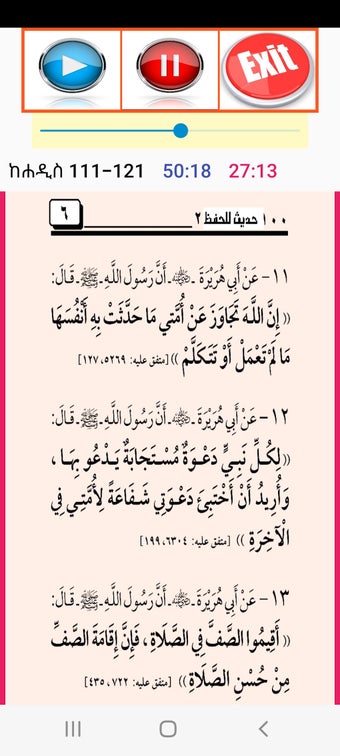 Exit
ከሐዲስ 111-121 50:18 27:13
٦ ١٠٠ حديث للحفظ ٢
١١- عَنْ أَبِي هُرَيْرَةَ ـ ﷺ ـ أَنَّ رَسُولَ اللَّهِ ـ ﷺ ـ قَالَ:
(( إِنَّ اللَّهَ تَجَاوَزَ عَنْ أُمَّتِي مَا حَدَّثَتْ بِهِ أَنْفُسَهَا
مَا لَمْ تَعْمَلْ أَوْ تَتَكَلَّمْ )) [متفق عليه: ٥٢٦٩، ١٢٧]
١٢- عَنْ أَبِي هُرَيْرَةَ ـ ﷺ ـ أَنَّ رَسُولَ اللَّهِ ـ ﷺ ـ قَالَ:
((لِكُلِّ نَبِيٍّ دَعْوَةٌ مُسْتَجَابَةٌ يَدْعُو بِهَا ،
وَأُرِيدُ أَنْ أَخْتَبِئَ دَعْوَتِي شَفَاعَةً لِأُمَّتِي فِي
الْآخِرَةِ )) [متفق عليه: ٦٣٠٤، ١٩٩]
١٣- عَنْ أَبِي هُرَيْرَةَ ـ ﷺ ـ أَنَّ رَسُولَ اللَّهِ ـ ﷺ ـ قَالَ:
(( أَقِيمُوا الصَّفَّ فِي الصَّلَاةِ ، فَإِنَّ إِقَامَةَ الصَّفِّ
مِنْ حُسْنِ الصَّلَاةِ)) [متفق عليه: ٧٢٢، ٤٣٥]